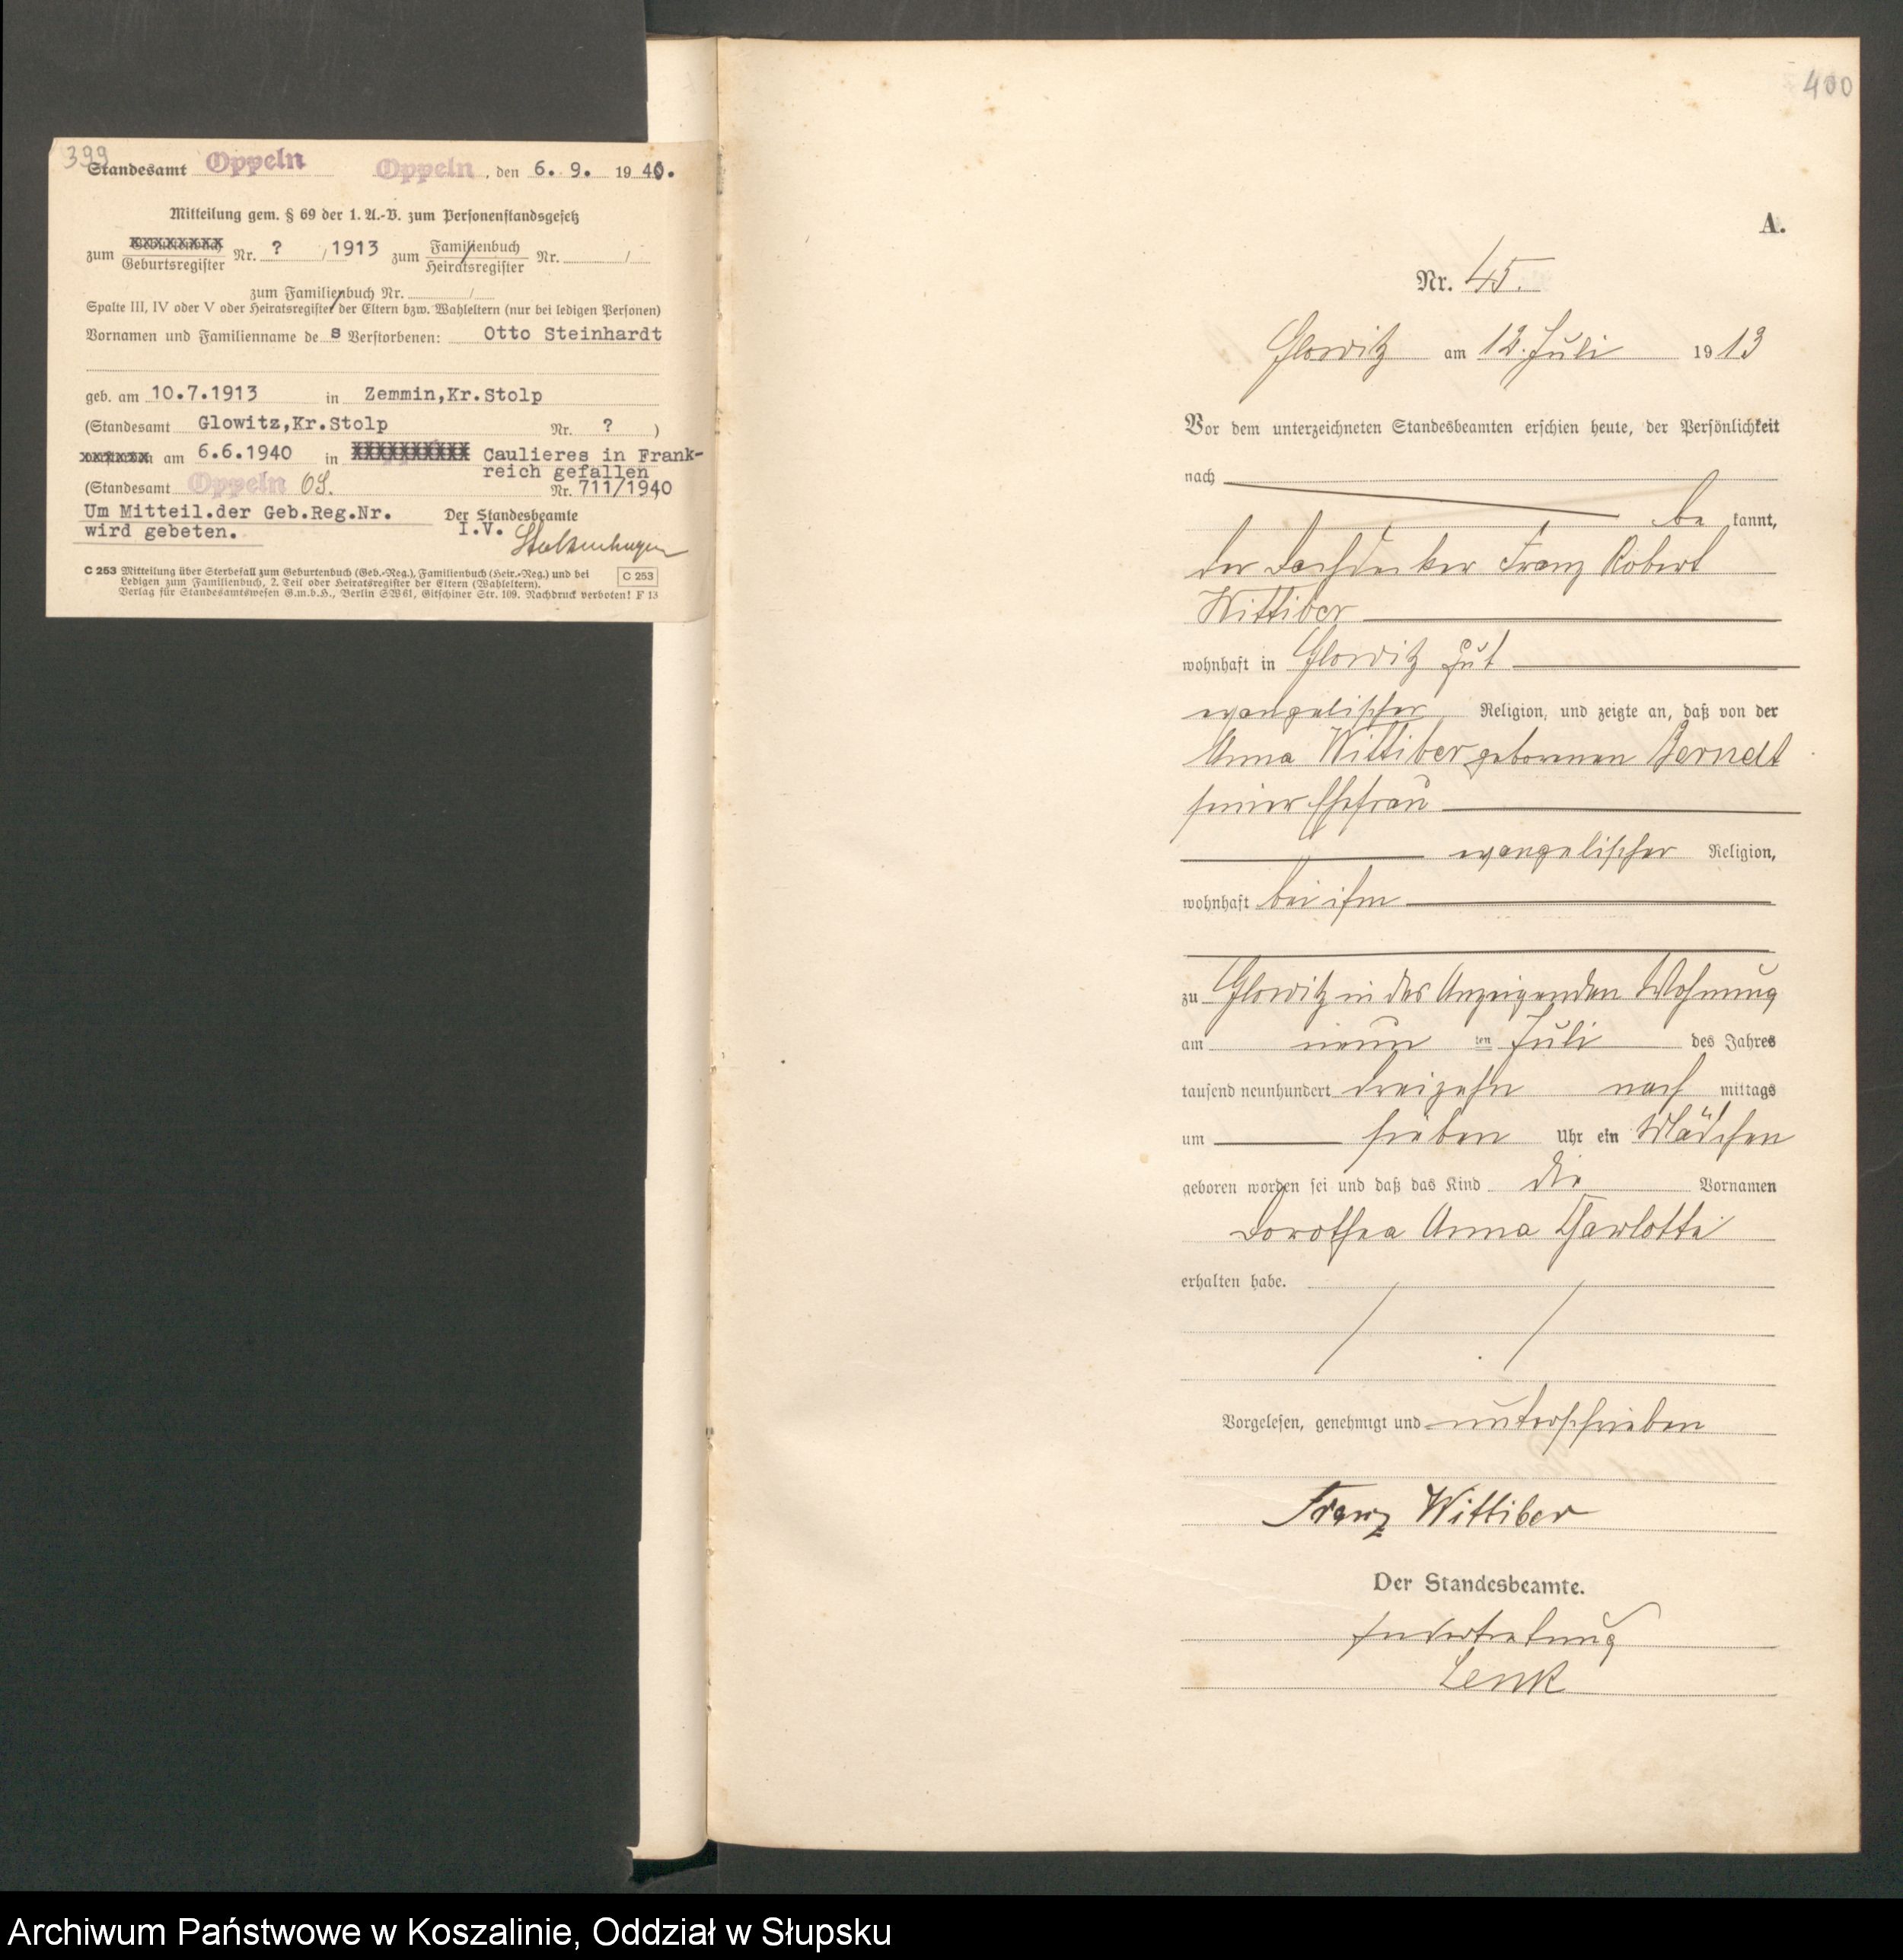 399
Standesamt Oppeln Oppeln, den 6. 9. 1940.
Mitteilung gem. § 69 der 1. A.-V. zum Personenstandsgesetz
zum Geburtsregister Nr. ? / 1913 zum Familienbuch Heiratsregister Nr. /
zum Familienbuch Nr. /
Spalte III, IV oder V oder Heiratsregister der Eltern bzw. Wahleltern (nur bei ledigen Personen)
Vornamen und Familienname de s Verstorbenen: Otto Steinhardt
geb. am 10.7.1913 in Zemmin,Kr.Stolp
(Standesamt Glowitz,Kr.Stolp Nr. ? )
am 6.6.1940 in Caulieres in Frank-
reich gefallen
(Standesamt Oppeln OS. Nr. 711/1940
Um Mitteil.der Geb.Reg.Nr. Der Standesbeamte
wird gebeten. I.V.
C 253 Mitteilung über Sterbefall zum Geburtenbuch (Geb.-Reg.), Familienbuch (Heir.-Reg.) und bei C 253
Ledigen zum Familienbuch, 2. Teil oder Heiratsregister der Eltern (Wahleltern).
Verlag für Standesamtswesen G.m.b.H., Berlin SW 61, Gitschiner Str. 109. Nachdruck verboten! F 13
400
A.
Nr. 45.
Glowitz am 12. Juli 1913
Vor dem unterzeichneten Standesbeamten erschien heute, der Persönlichkeit
nach
be kannt,
der Dachdecker Franz Robert
Wittiber
wohnhaft in Glowitz Gut
evangelischer Religion, und zeigte an, daß von der
Anna Wittiber geborenen Berndt
seiner Ehefrau
evangelischer Religion,
wohnhaft bei ihm
zu Glowitz in des Anzeigenden Wohnung
am neun ten Juli des Jahres
tausend neunhundert dreizehn nach mittags
um sieben Uhr ein Mädchen
geboren worden sei und daß das Kind die Vornamen
Dorothea Anna Charlotte
erhalten habe.
Vorgelesen, genehmigt und unterschrieben
Franz Wittiber
Der Standesbeamte.
In Vertretung
Lenk
Archiwum Państwowe w Koszalinie, Oddział w Słupsku